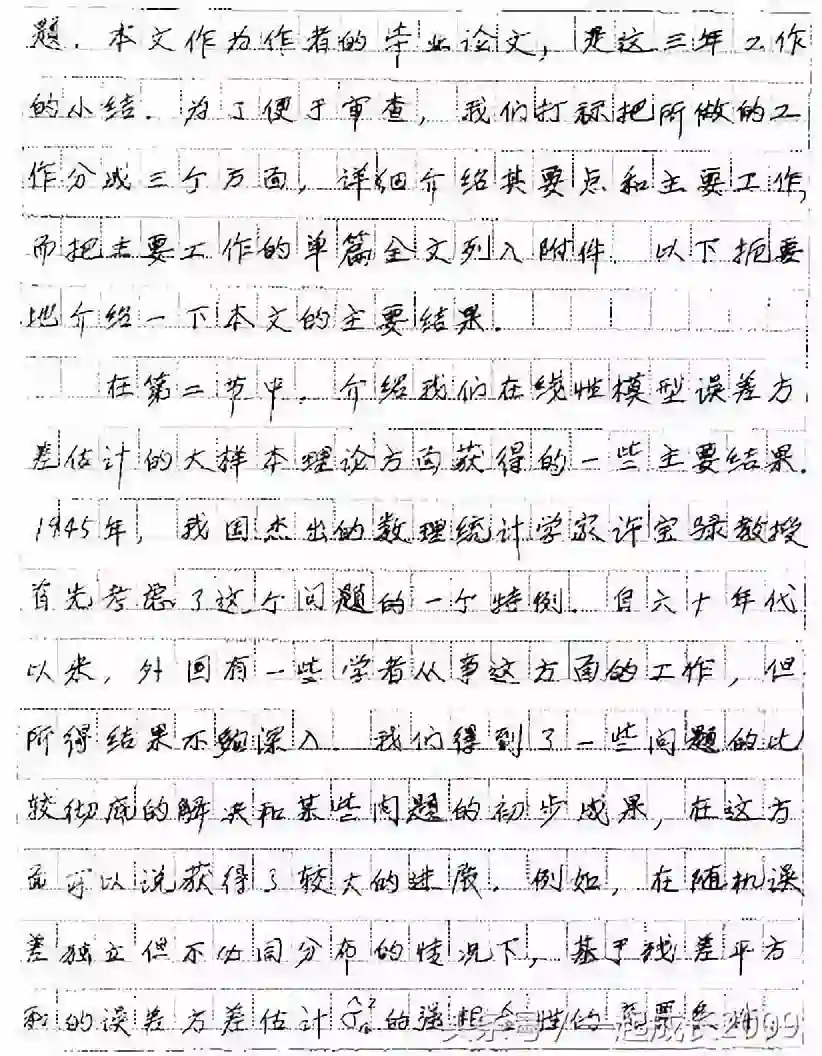 题. 本文作为作者的毕业论文, 是这三年工作
的小结. 为了便于审查, 我们打称把所做的工
作分成三个方面, 详细介绍其要点和主要工作,
而把主要工作的单篇全文列入附件. 以下扼要
地介绍一下本文的主要结果.
在第二节中, 介绍我们在线性模型误差方
差估计的大样本理论方面获得的一些主要结果.
1945年, 我国杰出的数理统计学家许宝騄教授
首先考虑了这个问题的一个特例. 自六十年代
以来, 外国有一些学者从事这方面的工作, 但
所得结果不够深入. 我们得到了一些问题的比
较彻底的解决和某些问题的初步成果, 在这方
面可以说获得了较大的进展. 例如, 在随机误
差独立但不必同分布的情况下, 基于残差平方
和的误差方差估计σ̂ₙ²的强相合性的
头条号/一起成长2099